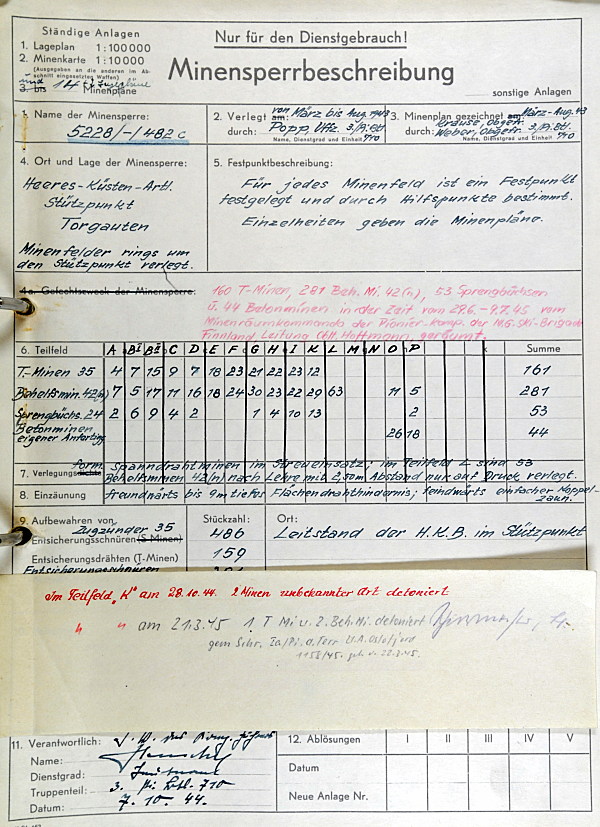 Ständige Anlagen
1. Lageplan 1:100000
2. Minenkarte 1:10000
(Ausgegeben an die anderen im Abschnitt eingesetzten Waffen)
3. bis 14 Minenpläne
Nur für den Dienstgebrauch!
Minensperrbeschreibung
sonstige Anlagen
1. Name der Minensperre:
5228/-/482c
2. Verlegt am: von März bis Aug. 1943
durch: Popp, Uffz. 3./Pi. Btl. 710
Name, Dienstgrad und Einheit
3. Minenplan gezeichnet am: März-Aug. 43
durch: Krause, Obgefr. Weber, Obgefr. 3./Pi. Btl. 710
Name, Dienstgrad und Einheit
4. Ort und Lage der Minensperre:
Heeres-Küsten-Artl.
Stützpunkt
Torgauten
Minenfelder rings um
den Stützpunkt verlegt.
5. Festpunktbeschreibung:
Für jedes Minenfeld ist ein Festpunkt
festgelegt und durch Hilfspunkte bestimmt.
Einzelheiten geben die Minenpläne.
4a. Gefechtszweck der Minensperre:
160 T-Minen, 281 Beh. Mi. 42(n), 53 Sprengbüchsen
u. 44 Betonminen in der Zeit vom 29.6. – 9.7.45 vom
Minenräumkommando der Pionier-Komp. der M.G. Ski-Brigade
Finnland Leitung Hoffmann geräumt.
6. Teilfeld A BI BII C D E F G H I K L M N O P Summe
T.-Minen 35 4 7 15 9 7 18 23 21 22 23 12 161
Behelfsmin. 42(n) 7 5 17 11 16 18 24 30 23 22 29 63 11 5 281
Sprengbüchs. 24 2 6 9 4 2 1 4 10 13 2 53
Betonminen
eigener Anfertig. 26 18 44
7. Verlegungsform: Spanndrahtminen im Streueinsatz; im Teilfeld L sind 53
Behelfsminen 42(n) nach Lehre mit 2,50m Abstand nur auf Druck verlegt.
8. Einzäunung freundwärts bis 9m tiefes Flächendrahthindernis; feindwärts einfacher Koppelzaun.
9. Aufbewahren von Stückzahl: Ort:
Zugzünder 35
Entsicherungsschnüren (S-Minen) 486 Leitstand der H.K.B. im Stützpunkt
Entsicherungsdrähten (T-Minen) 159
Entsicherungsschnüren
Im Teilfeld „K" am 28.10.44. 2 Minen unbekannter Art detoniert
" " am 21.3.45 1 T Mi u. 2 Beh. Mi. detoniert
gem. Schr. Ia/Pi. d. Terr. U.A. Oslofjord
1158/45. geh. v. 22.3.45.
11. Verantwortlich:
Name:
Dienstgrad:
Truppenteil: 3. Pi. Btl. 710
Datum: 7. 10. 44.
12. Ablösungen I II III IV V
Datum
Neue Anlage Nr.